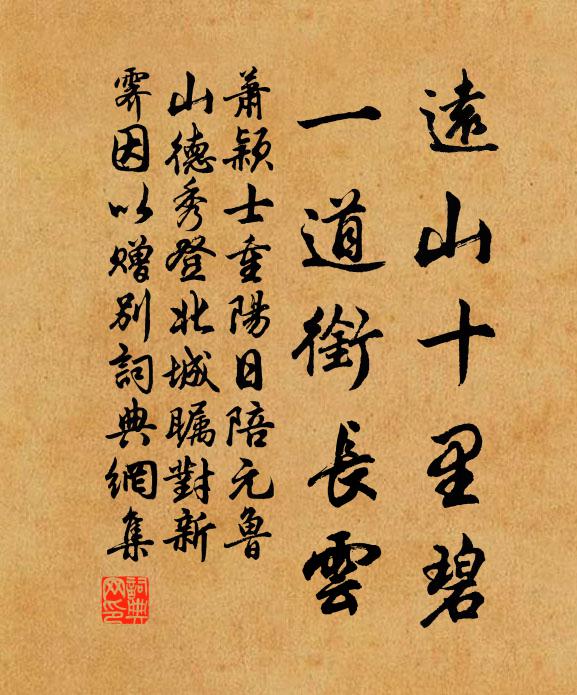 遠山十里碧
一道銜長雲
蕭穎士重陽日陪元魯
山德秀登北城矚對新
霽因以贈別詞典網集
詞典网印